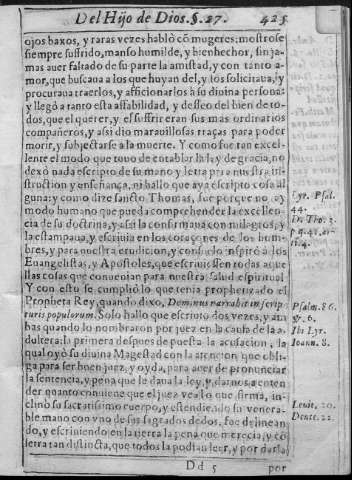 Del Hijo de Dios. §. 27. 425
ojos baxos, y raras vezes habló cō mugeres: mostrose
siempre suffrido, manso humilde, y bienhechor, sin ja-
mas auer faltado de su parte la amistad, y con tanto a-
mor, que buscaua a los que huyan del, y los solicitaua, y
procuraua traerlos, y afficionarlos à su diuina persona:
y llegó a tanto esta affabilidad, y desseo del bien de to-
dos, que el querer, y el suffrir eran sus mas ordinarios
compañeros, y assi dio marauillosas traças para poder
morir, y subjectarse a la muerte. Y como fue tan excel-
lente el modo que touo de entablar la ley de gracia, no
dexò nada escripto de su mano y letra para nuestra in-
struction y enseñança, ni hallo que aya escripto cosa al
guna: y como dize sancto Thomas, fue porque no ay
modo humano que pueda comprehender la excellen-
cia de su doctrina, y assi la confirmaua con milagros, y
la estampaua, y escriuia en los coraçones de los hom-
bres, y para nuestra erudicion, y consuelo inspiró a los
Euangelistas, y Apostoles, que escriuiessen todas aque
llas cosas que conuenian para nuestra salud espiritual
Y con esto se cumplió lo que tenia prophetizado el
Propheta Rey, quando dixo, Dominus narrabit in scrip
turis populorum. Solo hallo que escriuio dos vezes, y am
bas quando lo nombraron por juez en la causa de la a-
dultera: la primera despues de puesta la acusacion, la
qual oyò su diuina Magestad con la atencion que obli-
ga para ser buen juez, y oyda, para auer de pronunciar
la sentencia, y pena que le daua la ley, y darnos a enten
der quanto conuiene que el juez vea lo que firma, in-
clinò su sacratissimo cuerpo, y estendiendo su venera-
ble mano con vno de sus sagrados dedos, fue delinean
do, y escriuiendo en la tierra la pena que merecia, y cō
letra tan distincta, que todos la podian leer, y por darla
Dd 5 por
Lyr. Psal.
44.
D. Tho. 3.
p. q. 42. ar-
ti. 4.
Psalm. 86.
gr. 6.
Ibi Lyr.
Ioann. 8.
Leuit. 20.
Deute. 22.